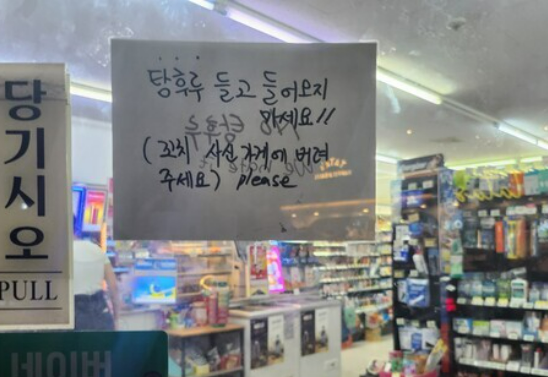 당기시오
PULL
탕후루 들고 들어오지
마세요!!
(꼬치 사신 가게에 버려
주세요) please
네이버